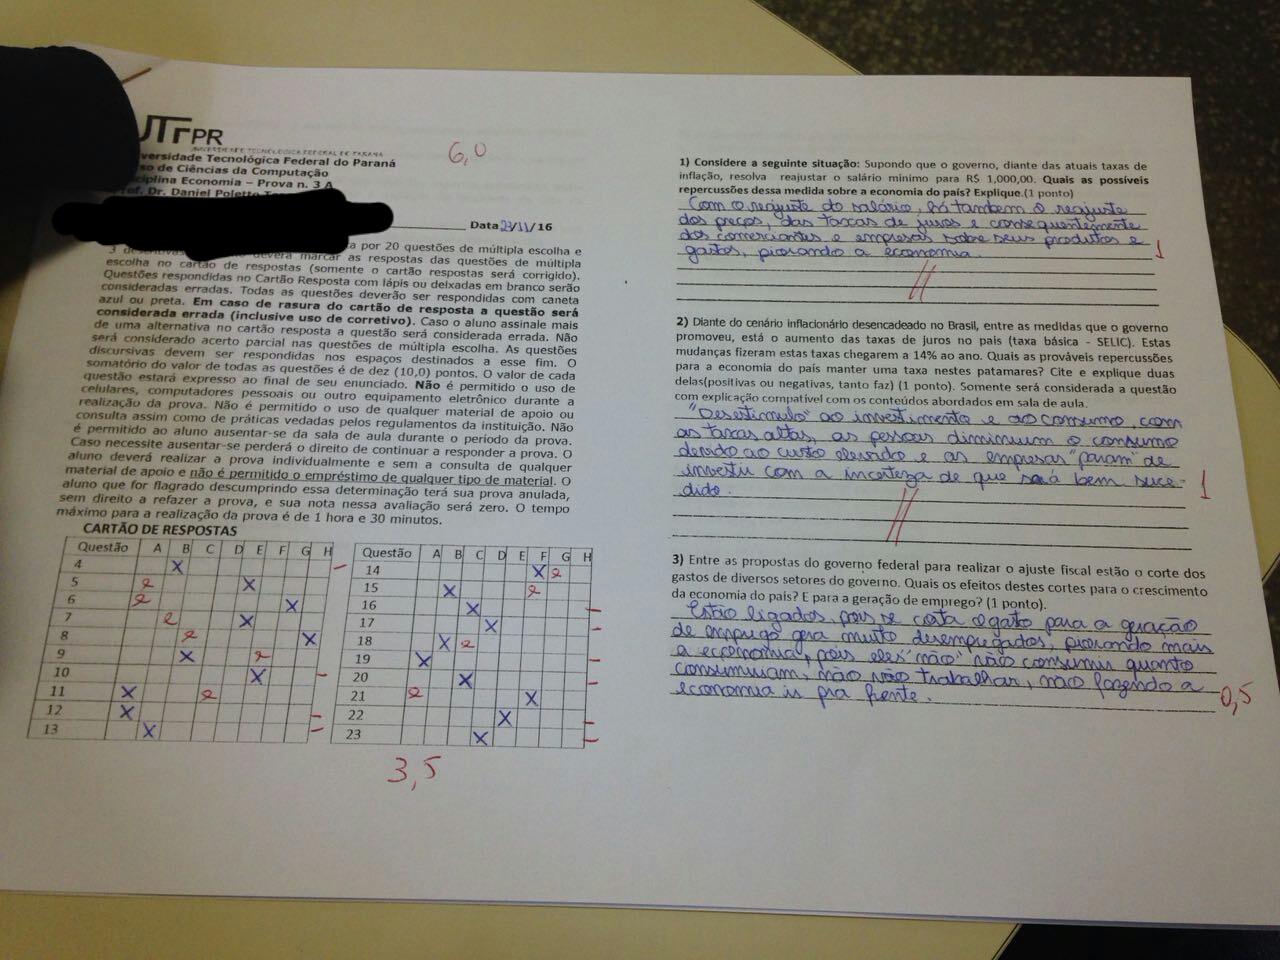 UTFPR
UNIVERSIDADE TECNOLÓGICA FEDERAL DO PARANÁ
versidade Tecnológica Federal do Paraná
so de Ciências da Computação
ciplina Economia – Prova n. 3 A
Prof. Dr. Daniel Poletto
6,0
Data 23/11/16
ta por 20 questões de múltipla escolha e
3 deverá marcar as respostas das questões de múltipla
escolha no cartão de respostas (somente o cartão respostas será corrigido).
Questões respondidas no Cartão Resposta com lápis ou deixadas em branco serão
consideradas erradas. Todas as questões deverão ser respondidas com caneta
azul ou preta. Em caso de rasura do cartão de resposta a questão será
considerada errada (inclusive uso de corretivo). Caso o aluno assinale mais
de uma alternativa no cartão resposta a questão será considerada errada. Não
será considerado acerto parcial nas questões de múltipla escolha. As questões
discursivas devem ser respondidas nos espaços destinados a esse fim. O
somatório do valor de todas as questões é de dez (10,0) pontos. O valor de cada
questão estará expresso ao final de seu enunciado. Não é permitido o uso de
celulares, computadores pessoais ou outro equipamento eletrônico durante a
realização da prova. Não é permitido o uso de qualquer material de apoio ou
consulta assim como de práticas vedadas pelos regulamentos da instituição. Não
é permitido ao aluno ausentar-se da sala de aula durante o período da prova.
Caso necessite ausentar-se perderá o direito de continuar a responder a prova. O
aluno deverá realizar a prova individualmente e sem a consulta de qualquer
material de apoio e não é permitido o empréstimo de qualquer tipo de material. O
aluno que for flagrado descumprindo essa determinação terá sua prova anulada,
sem direito a refazer a prova, e sua nota nesta avaliação será zero. O tempo
máximo para a realização da prova é de 1 hora e 30 minutos.
CARTÃO DE RESPOSTAS
Questão A B C D E F G H
4 X
5 X
6 X
7 X
8 X
9 X
10 X
11 X
12 X
13 X
Questão A B C D E F G H
14 X
15 X
16 X
17 X
18 X
19 X
20 X
21 X
22 X
23 X
3,5
1) Considere a seguinte situação: Supondo que o governo, diante das atuais taxas de
inflação, resolva reajustar o salário mínimo para R$ 1,000,00. Quais as possíveis
repercussões dessa medida sobre a economia do país? Explique.(1 ponto)
Com o reajuste do salário, há também o reajuste
dos preços, das taxas de juros e consequentemente
dos comerciantes e empresas sobre seus produtos e
gastos, piorando a economia.
1
2) Diante do cenário inflacionário desencadeado no Brasil, entre as medidas que o governo
promoveu, está o aumento das taxas de juros no país (taxa básica - SELIC). Estas
mudanças fizeram estas taxas chegarem a 14% ao ano. Quais as prováveis repercussões
para a economia do país manter uma taxa nestes patamares? Cite e explique duas
delas(positivas ou negativas, tanto faz) (1 ponto). Somente será considerada a questão
com explicação compatível com os conteúdos abordados em sala de aula.
"Desestimulo" ao investimento e ao consumo, com
as taxas altas, as pessoas diminuem o consumo
devido ao custo elevado e as empresas "param" de
investir com a incerteza de que será bem suce-
dido.
1
3) Entre as propostas do governo federal para realizar o ajuste fiscal estão o corte dos
gastos de diversos setores do governo. Quais os efeitos destes cortes para o crescimento
da economia do país? E para a geração de emprego? (1 ponto).
Estão ligados, pois se corta o gasto para a geração
de emprego gera muito desempregados, piorando mais
a economia, pois eles "não" vão consumir quanto
consumiam, não vão trabalhar, não fazendo a
economia ir pra frente.
0,5